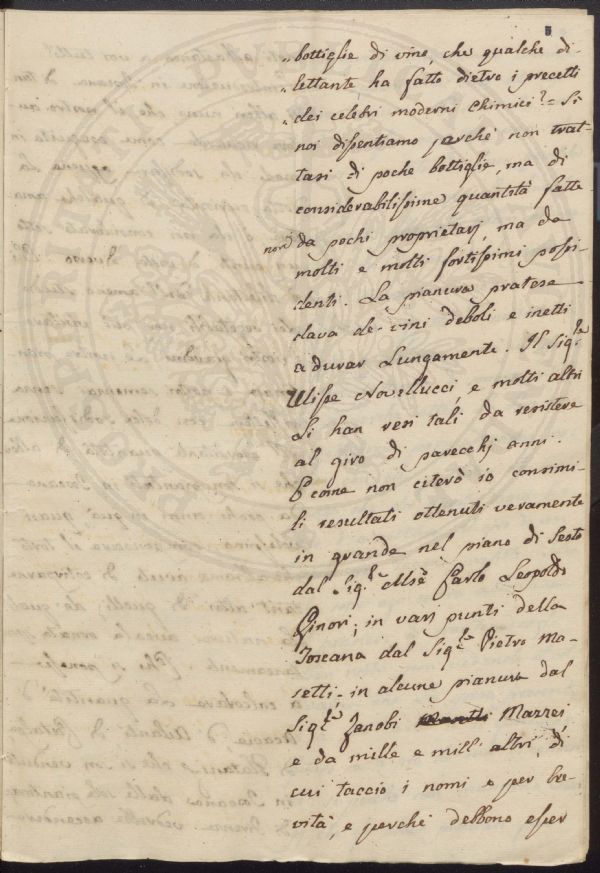 „ bottiglie di vino, che qualche di-
„ lettante ha fatto dietro i precetti
„ dei celebri moderni Chimici? = Si
noi dispentiamo perchè non trat-
tasi di poche bottiglie, ma di
considerabilissime quantità fatte
non da pochi proprietarj, ma da
molti e molti fortissimi possi-
denti. La pianura pratese
dava de' vini deboli e inetti
a durar lungamente. Il Sig.re
Ulisse Novellucci, e molti altri
li han resi tali da resistere
al giro di parecchj anni.
E come non citerò io consimi-
li resultati ottenuti veramente
in grande nel piano di Sesto
dal Sig.re Mse Carlo Leopoldo
Ginori; in varj punti della
Toscana dal Sig.re Pietro Ma-
setti; in alcune pianure dal
Sig.re Zanobi Mazzei,
e da mille e mill' altri, di
cui taccio i nomi e per bre-
vità, e perchè debbono esser